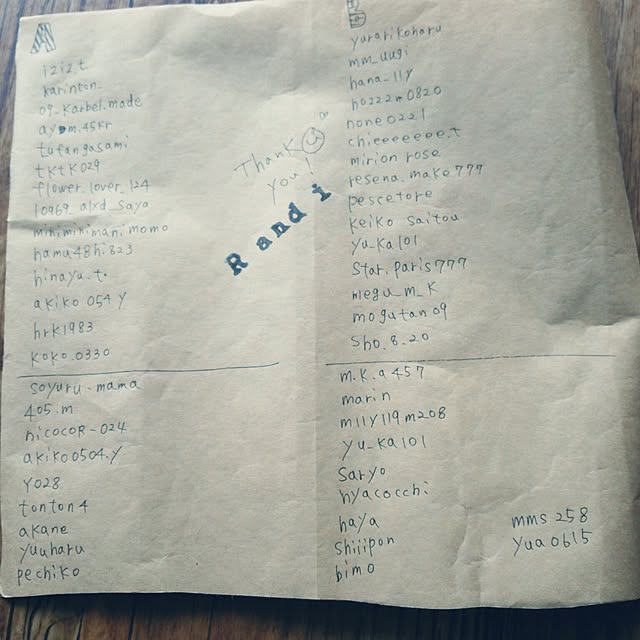 A
iziz.t
karinton_
09_karbel.made
tutangasami
tktk029
flower_lover_124
10969_alxd_saya
miniminimani.momo
hamu48hi823
hinayu.t.
akiko 054 y
hrk1983
koko.0330
soyuru-mama
405.m
nicocoR-024
akiko0504.y
Y028
tonton4
akane
yuuharu
pechiko
Thank
you!
Randi
B
yurarikoharu
mm_uugi
hana_11y
ho222m0820
none0221
chieeeeeee.t
mirion rose
resena_mako777
pescetore
keiko saitou
yu-ka101
star.paris777
megu_m_k
mogutan09
sho.8.20
m.k.a457
marin
m11y119m208
yu-ka101
saryo
nyacocchi
haya
shiiipon
bimo
mms 258
yua0615